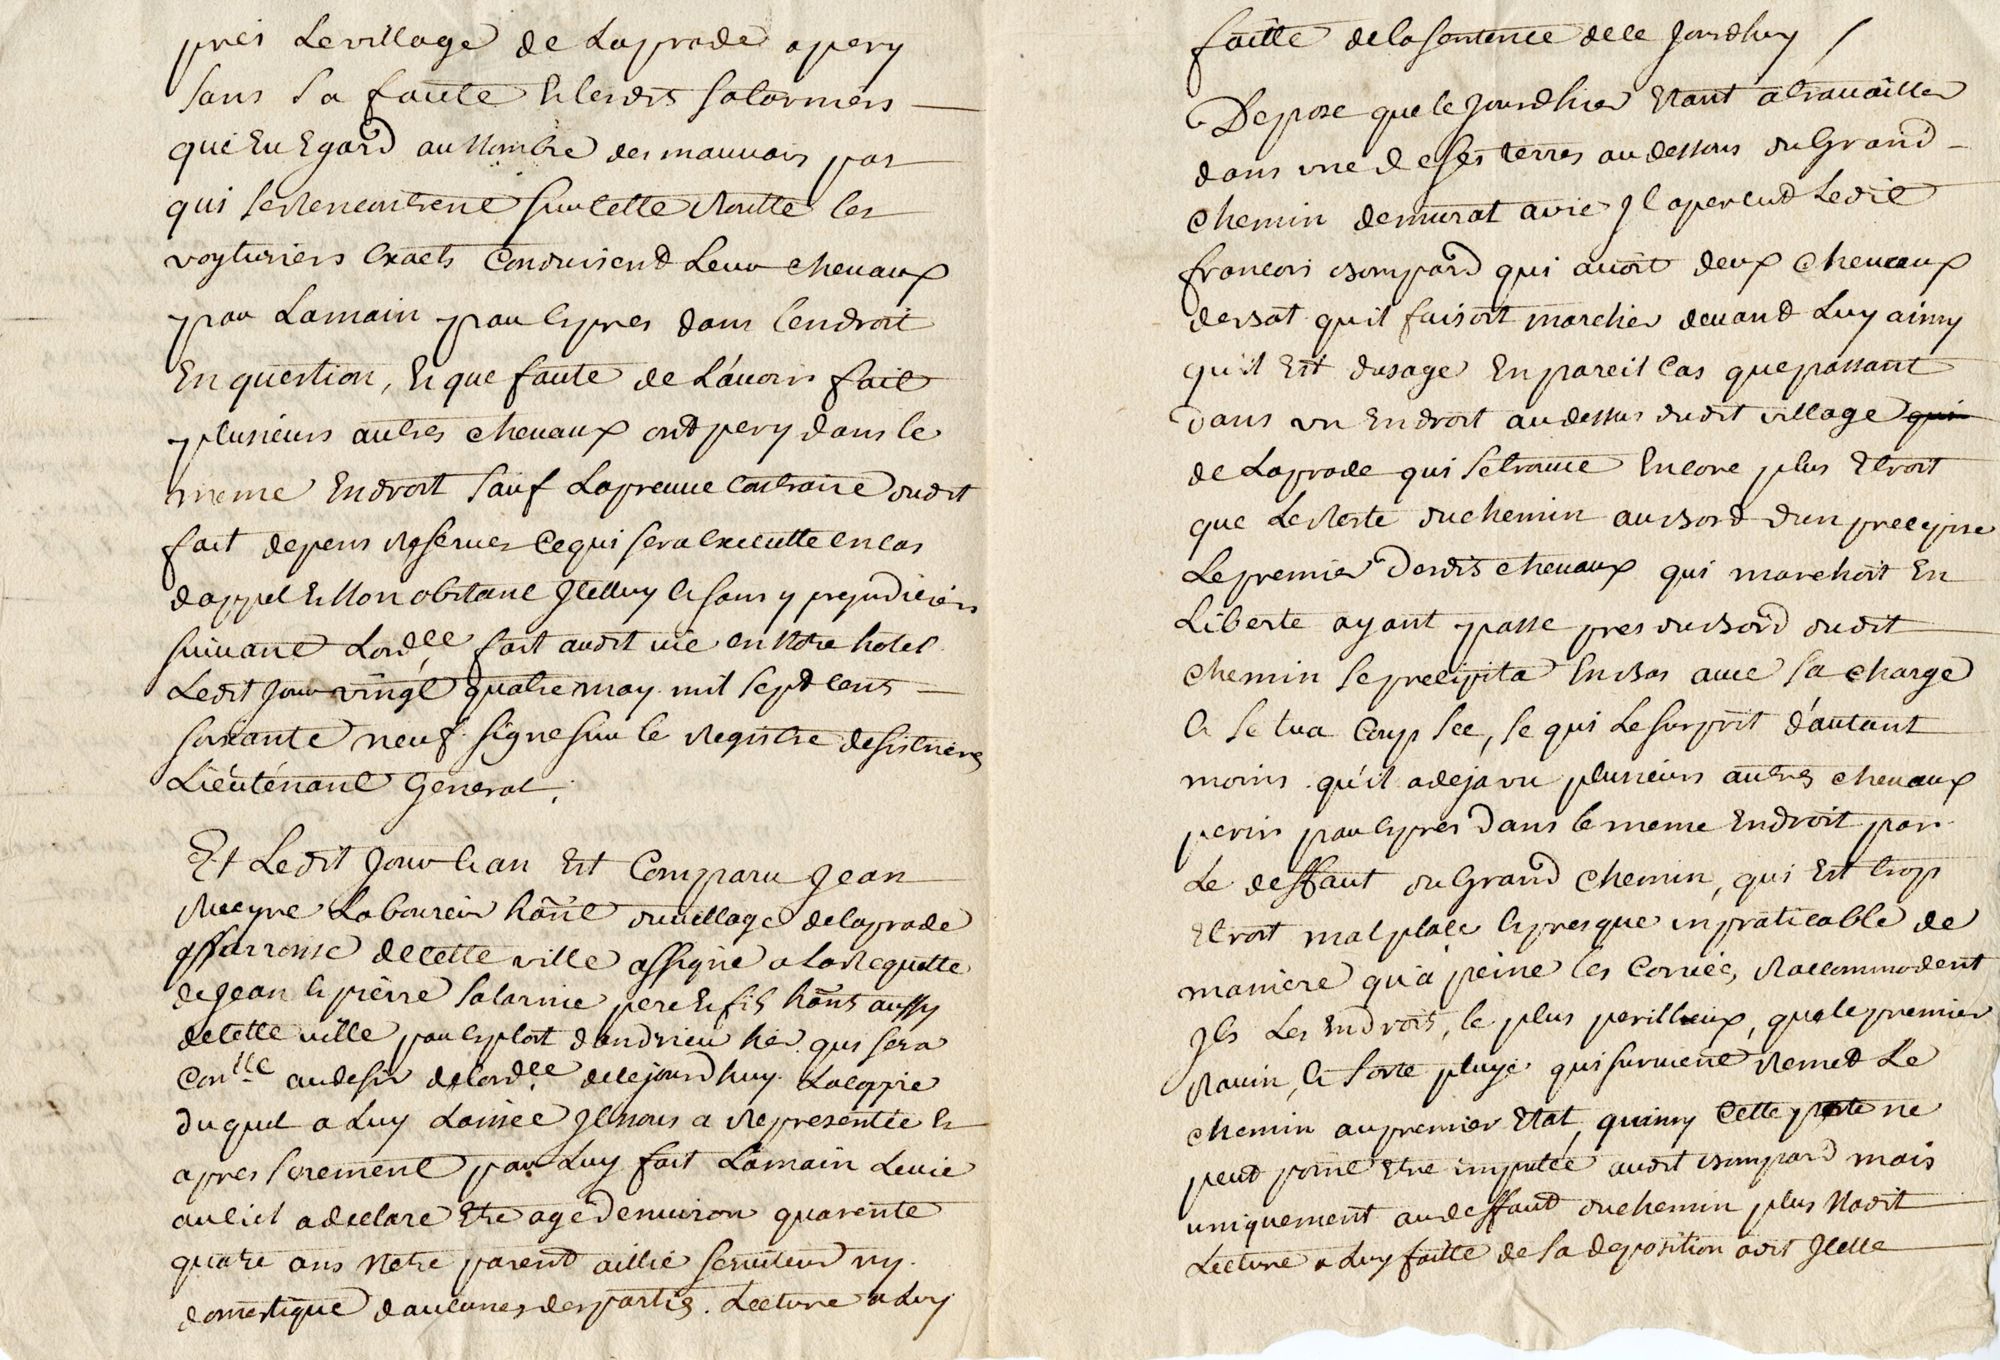 pres Le village de Laprade a pery
sans sa faute Et lesdits salarniers
que Eu Egard au Nombre des mauvais pas
qui se Rencontrent sur cette Routte les
voyturiers Exacts Conduisent Leur chevaux
par Lamain par Expres dans lendroit
En question, Et que faute de L'avoir fait
plusieurs autres chevaux ont pery dans le
meme Endroit sauf Lapreuve Contraire dudit
fait depens Reserves Ce qui sera Executte en cas
dappel Et Non obstant Icelluy Et sans y prejudicier
suivant Lordce fait audit vic en Notre hotel
Ledit Jour vingt quatre may mil sept cens
soixante neuf signe sur le Registre de sistrieres
Lieutenant General.
Et Ledit Jour Et an Est Comparu Jean
Laboureur hañt du village de laprade
parroisse de cette ville assigné a la Requette
de Jean Et pierre salarnie pere Et fils hants aussy
de cette ville par Exploit dandrieu her qui sera
Conlle au desir de lordce de ce jourdhuy La coppie
Duquel a Luy Laissée Il nous a Representée Et
apres serement par Luy fait Lamain Levée
au Ciel a declaré Etre agé Denviron quarente
quatre ans Netre parent aillié serviteur ny
domestique daucunes des parties. Lecture a Luy
faitte de la sentence de ce Jourdhuy /
Depose que le Jourdhier Etant a travailler
dans une de ses terres au dessous du Grand
chemin de murat a vic Il apercut Ledit
francois bompard qui avoit deux chevaux
de bat qu'il faisoit marcher devand Luy ainsy
qu'il Est dusage En pareil Cas que passant
Dans un Endroit au dessus dudit village qui
de Laprade qui se trouve Encore plus Etroit
que Le Reste du chemin au bord dun precipice
Le premier Desdits chevaux qui marchoit En
Liberté ayant passe pres du bord dudit
chemin se precipita En bas avec sa charge
Et se tua Coup sec, se qui Le surprit d'autant
moins qu'il a deja vu plusieurs autres chevaux
perir par Expres Dans le meme Endroit par
Le deffaut du Grand chemin, qui Est trop
Etroit mal placé Et presque inpraticable de
maniere qu'a peine les Corvées, Raccommodent
Ils Les Endroits, le plus perilleux, que le premier
Ravin, Et forte pluye qui survient Remet Le
chemin au premier Etat, qu'ainsy Cette perte ne
peut point Etre imputée audit bompard mais
uniquement au deffaut du chemin plus Na dit
Lecture a Luy faitte de sa deposition a dit Icelle